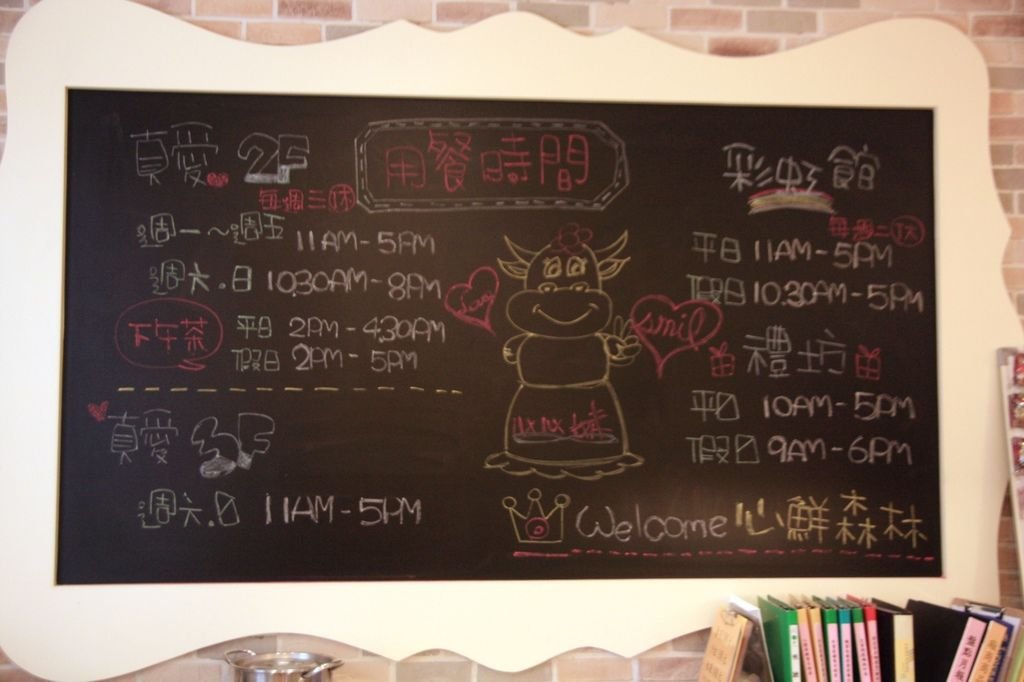 用餐時間
真愛 2F
每週三休
週一～週五 11AM-5PM
週六.日 10:30AM-8PM
下午茶
平日 2PM-4:30PM
假日 2PM-5PM
真愛 3F
週六.日 11AM-5PM
smil
彩虹館
每週二休
平日 11AM-5PM
假日 10:30AM-5PM
禮坊
平日 10AM-5PM
假日 9AM-6PM
Welcome 心鮮森林